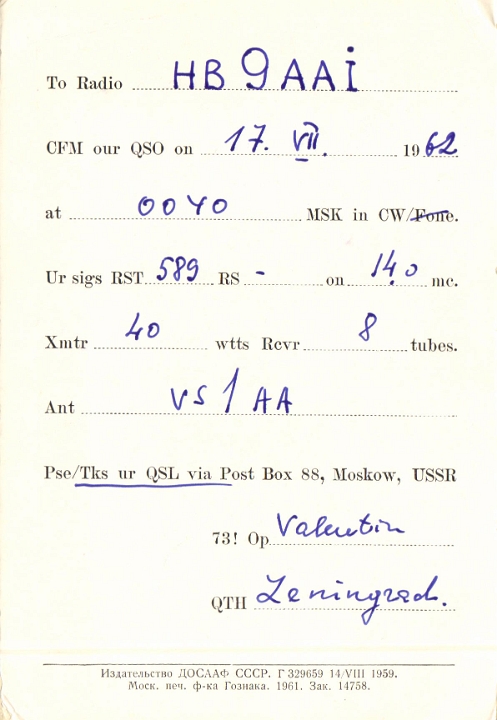 To Radio HB9AAI
CFM our QSO on 17. VII. 1962
at 0040 MSK in CW/Fone.
Ur sigs RST 589 RS - on 14.0 mc.
Xmtr 40 wtts Rcvr 8 tubes.
Ant VS1AA
Pse/Tks ur QSL via Post Box 88, Moskow, USSR
73! Op Valentin
QTH Leningrad.
Издательство ДОСААФ СССР. Г 329659 14/VIII 1959.
Моск. печ. ф-ка Гознака. 1961. Зак. 14758.